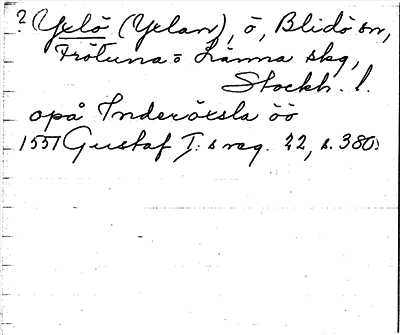 ? Yxlö (Yxlan), ö, Blidö sn,
Frötuna o Länna skg,
Stockh. l.
opå Inderöxsla öö
1551 Gustaf I:s reg. 22, s. 380.